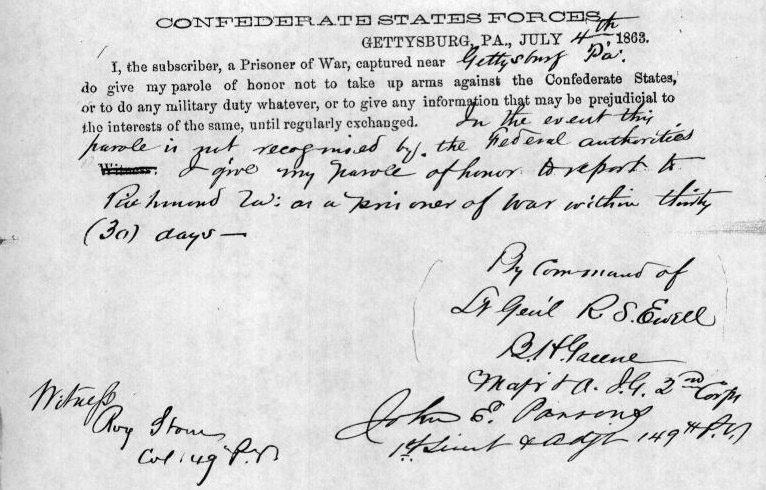 CONFEDERATE STATES FORCES,
GETTYSBURG, PA., JULY 4th 1863.
I, the subscriber, a Prisoner of War, captured near Gettysburg Pa.
do give my parole of honor not to take up arms against the Confederate States,
or to do any military duty whatever, or to give any information that may be prejudicial to
the interests of the same, until regularly exchanged. In the event this
parole is not recognised by the Federal authorities
Witness: I give my parole of honor to report to
Richmond Va: as a prisoner of war within thirty
(30) days —
By Command of
Lt Gen'l R S. Ewell
B. H. Greene
Maj'r & A. I. G. 2nd Corps
Witness
Roy Stone
Col 149 P.V.
John E. Parsons
1st Lieut & Adjt 149th P.V.